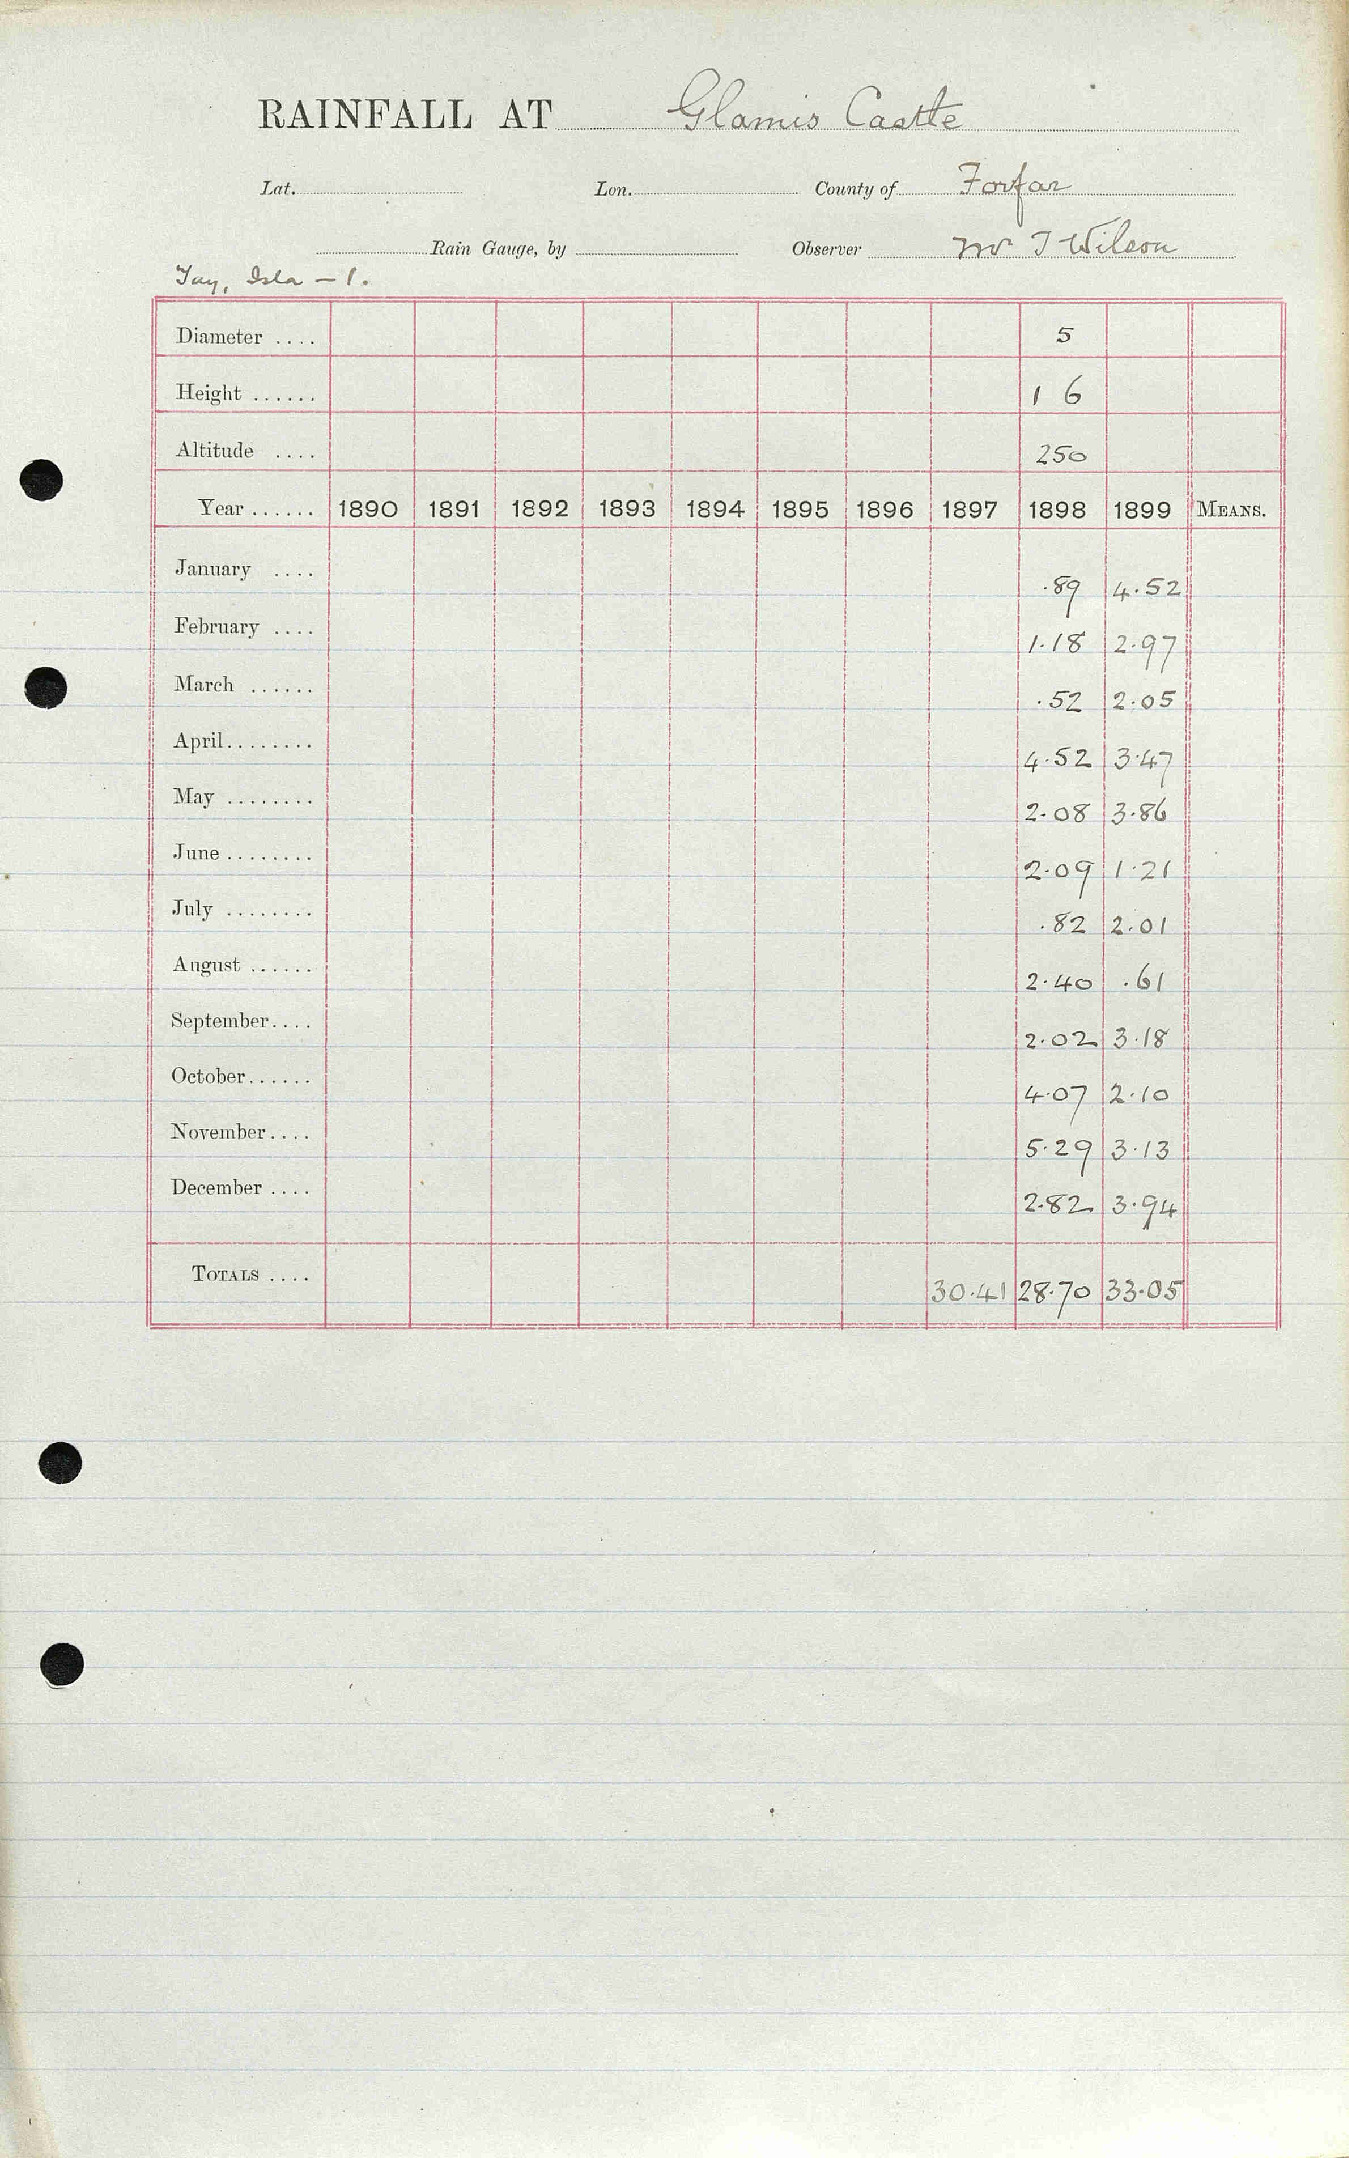 RAINFALL AT Glamis Castle
Lat. Lon. County of Forfar
Rain Gauge, by Observer Mr J Wilson
Tay, Isla - 1.
Diameter .... 5
Height ...... 1 6
Altitude .... 250
Year ...... 1890 1891 1892 1893 1894 1895 1896 1897 1898 1899 MEANS.
January .... .89 4.52
February .... 1.18 2.97
March ...... .52 2.05
April........ 4.52 3.47
May ........ 2.08 3.86
June ........ 2.09 1.21
July ........ .82 2.01
August ...... 2.40 .61
September.... 2.02 3.18
October...... 4.07 2.10
November.... 5.29 3.13
December .... 2.82 3.94
TOTALS .... 30.41 28.70 33.05